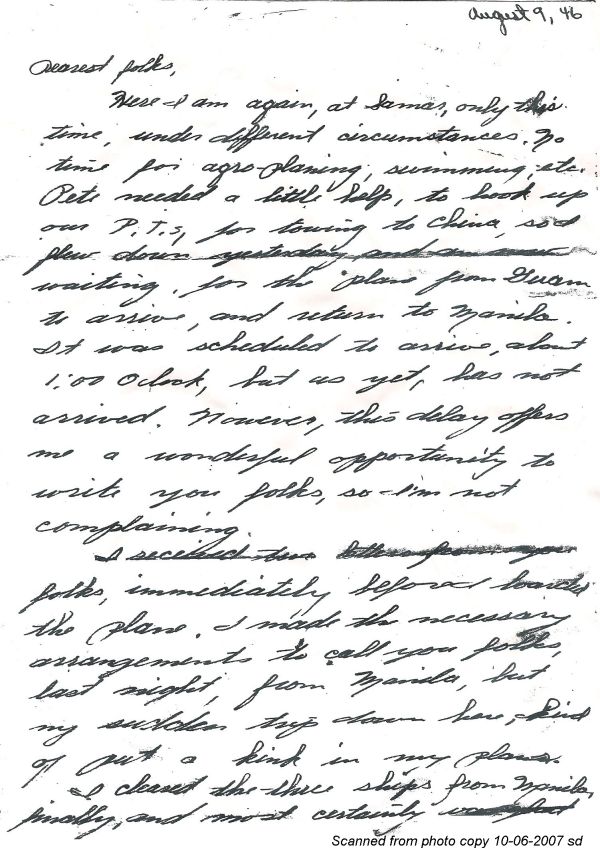 August 9, 46
Dearest folks,
Here I am again, at Samar, only this
time, under different circumstances. No
time for agro-planing, swimming, etc.
Pete needed a little help, to hook up
our P.T.s, for towing to China, so I
flew down yesterday and am now
waiting, for the plane from Guam
to arrive, and return to Manila.
It was scheduled to arrive, about
1:00 Oclock, but as yet, has not
arrived. However, this delay offers
me a wonderful opportunity to
write you folks, so I'm not
complaining.
I received two letters from you
folks, immediately before I boarded
the plane. I made the necessary
arrangements to call you folks,
last night, from Manila, but
my sudden trip down here, kind
of put a kink in my plans.
I cleared the three ships from Manila,
finally, and most certainly
Scanned from photo copy 10-06-2007 sd